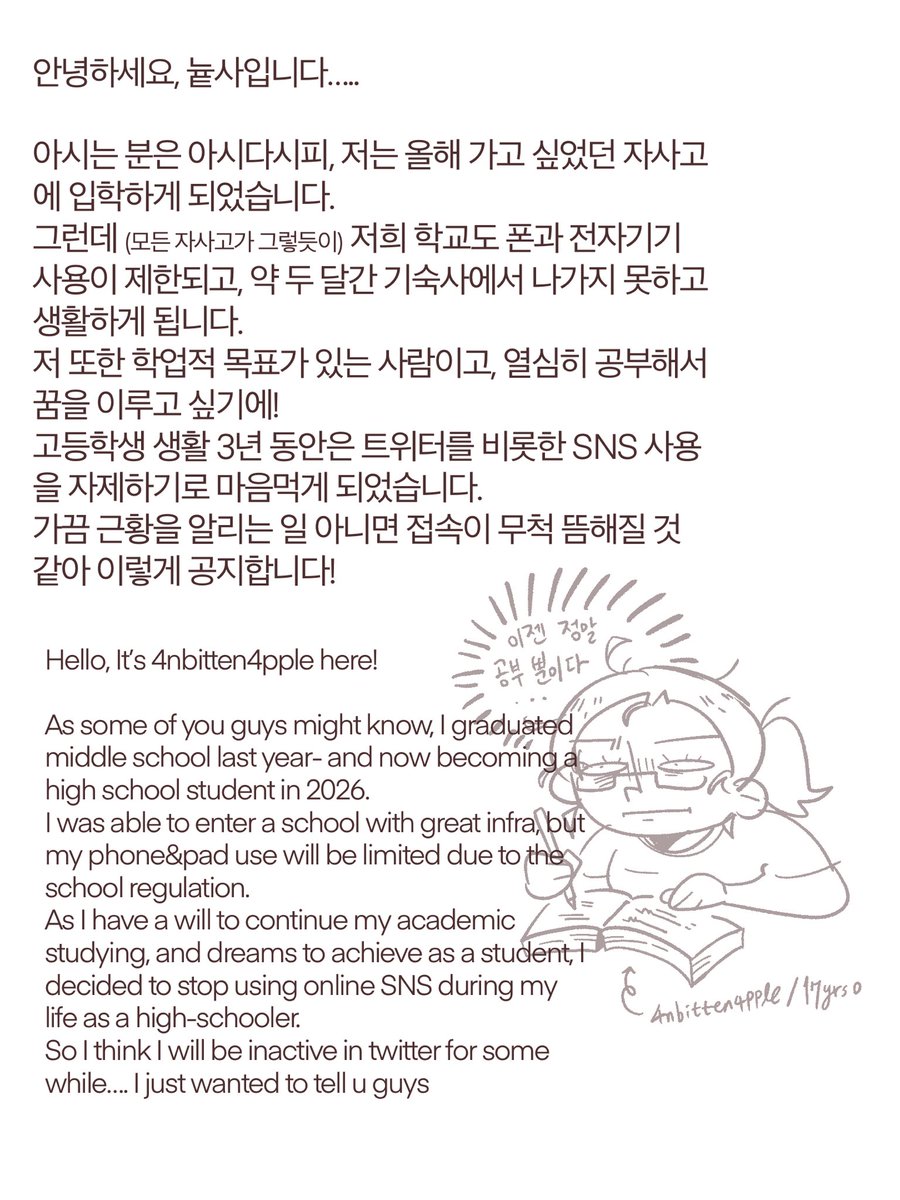 안녕하세요, 뉱사입니다.....
아시는 분은 아시다시피, 저는 올해 가고 싶었던 자사고
에 입학하게 되었습니다.
그런데 (모든 자사고가 그렇듯이) 저희 학교도 폰과 전자기기
사용이 제한되고, 약 두 달간 기숙사에서 나가지 못하고
생활하게 됩니다.
저 또한 학업적 목표가 있는 사람이고, 열심히 공부해서
꿈을 이루고 싶기에!
고등학생 생활 3년 동안은 트위터를 비롯한 SNS 사용
을 자제하기로 마음먹게 되었습니다.
가끔 근황을 알리는 일 아니면 접속이 무척 뜸해질 것
같아 이렇게 공지합니다!
이젠 정말
공부 뿐이다
...
Hello, It's 4nbitten4pple here!
As some of you guys might know, I graduated
middle school last year- and now becoming a
high school student in 2026.
I was able to enter a school with great infra, but
my phone&pad use will be limited due to the
school regulation.
As I have a will to continue my academic
studying, and dreams to achieve as a student, I
decided to stop using online SNS during my
life as a high-schooler.
So I think I will be inactive in twitter for some
while.... I just wanted to tell u guys
4nbitten4pple / 17yrs o